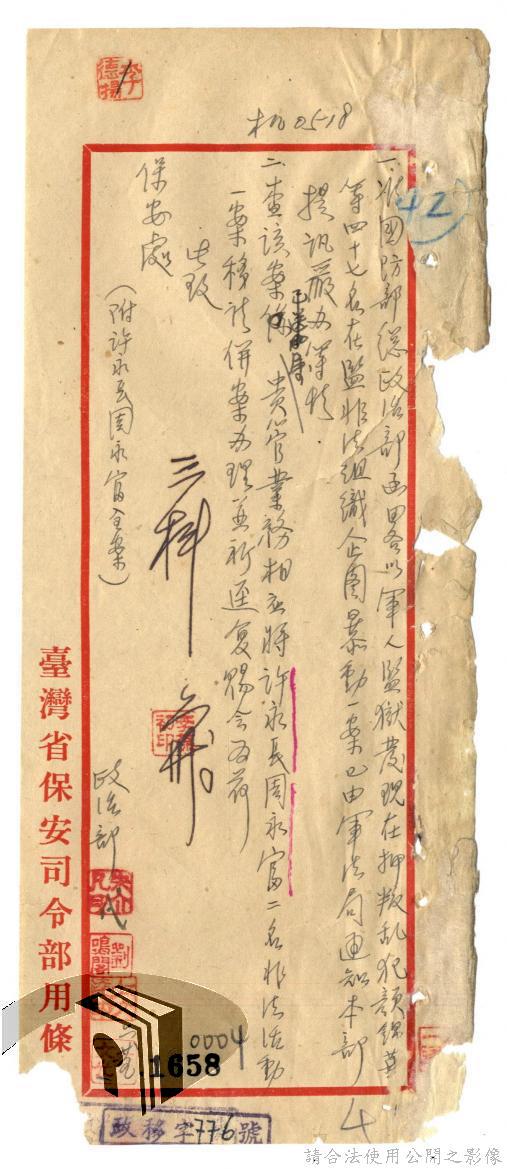 机0518
42
一、准國防部總政治部函略以軍人監獄發現在押叛乱犯顏錦華
等四十七名在監非法組織企圖暴動一案已由軍法局通知本部
提訊嚴办等情
二、查該案係貴管業務相應將許永長周永富二名非法活動
一案移請併案办理並祈逕复賜会為荷
此致
保安處
(附許永長周永富全案)
政治部
代
臺灣省保安司令部用條
0004
1658
政移字776號
請合法使用公開之影像